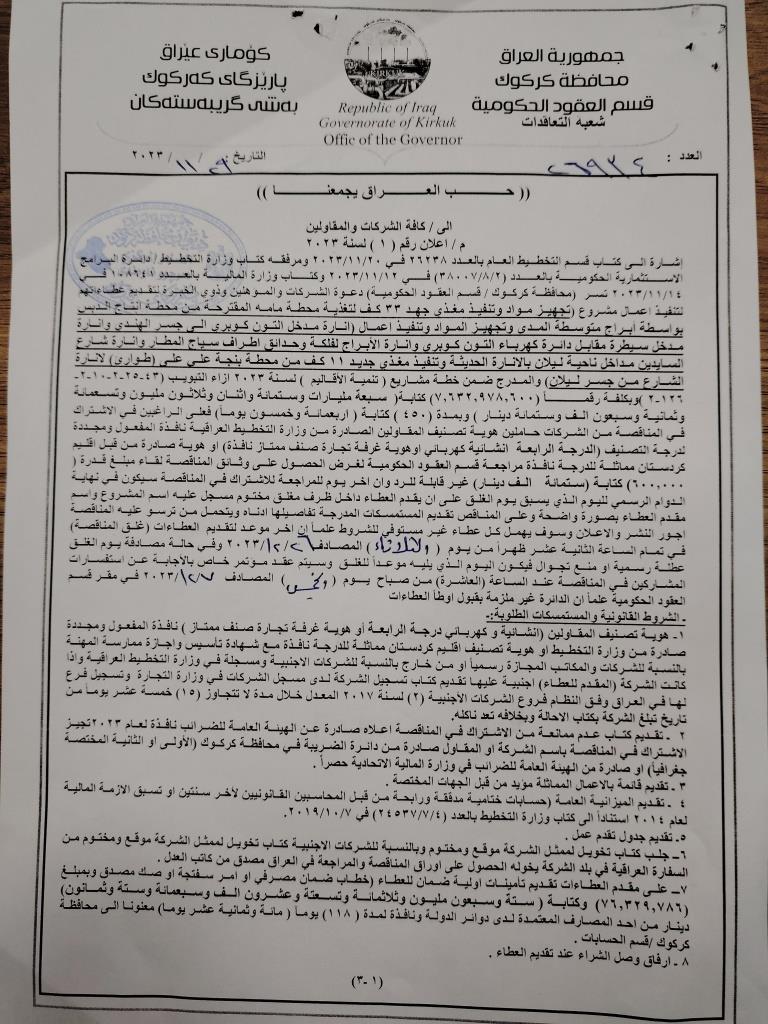 كۆماری عێراق
پارێزگای كەركوك
بەشی گرێبەستەكان
Republic of Iraq
Governorate of Kirkuk
Offic of the Governor
جمهورية العراق
محافظة كركوك
قسم العقود الحكومية
شعبة التعاقدات
العدد : ٢٦٩٣٤
التاريخ : ٢٩ / ١١ / ٢٠٢٣
(( حب العراق يجمعنا ))
الى / كافة الشركات والمقاولين
م / اعلان رقم ( ١ ) لسنة ٢٠٢٣
إشارة الى كتاب قسم التخطيط العام بالعدد ٢٦٢٣٨ في ٢٠٢٣/١١/٢٠ ومرفقه كتاب وزارة التخطيط / دائرة البرامج
الاستثمارية الحكومية بالعدد (٣٨٠٠٧/٨/٢) في ٢٠٢٣/١١/١٢ وكتاب وزارة المالية بالعدد ١٠٨٦٤١ في
٢٠٢٣/١١/١٤ تسر (محافظة كركوك / قسم العقود الحكومية) دعوة الشركات والمؤهلين وذوي الخبرة لتقديم عطاءاتهم
لتنفيذ اعمال مشروع (تجهيز مواد وتنفيذ مغذي جهد ٣٣ كف لتغذية محطة مامه المقترحة من محطة التاج الدبس
بواسطة ابراج متوسطة المدى وتجهيز المواد وتنفيذ اعمال (إنارة مدخل التون كوبري الى جسر الهندي وانارة
مدخل سيطرة مقابل دائرة كهرباء التون كوبري وانارة الأبراج لفلكة وحدائق اطراف سياج المطار وانارة شارع
السايدين مداخل ناحية ليلان بالانارة الحديثة وتنفيذ مغذي جديد ١١ كف من محطة بنجة علي على (طوارئ) لانارة
الشارع من جسر ليلان) والمدرج ضمن خطة مشاريع (تنمية الأقاليم ) لسنة ٢٠٢٣ ازاء التبويب (٤٣-٢٥-٢-١٠-
١٢٦-٢) وبكلفة رقماً (٧,٦٣٢,٩٧٨,٦٠٠) كتابة( سبعة مليارات وستمائة واثنان وثلاثون مليون وتسعمائة
وثمانية وسبعون الف وستمائة دينار ) وبمدة (٤٥٠) كتابة ( اربعمائة وخمسون يوماً) فعلى الراغبين في الاشتراك
في المناقصة من الشركات حاملين هوية تصنيف المقاولين الصادرة من وزارة التخطيط العراقية نافذة المفعول ومجددة
لدرجة التصنيف (الدرجة الرابعة انشائية كهربائي اوهوية غرفة تجارة صنف ممتاز نافذة) او هوية صادرة من قبل اقليم
كردستان مماثلة للدرجة نافذة مراجعة قسم العقود الحكومية لغرض الحصول على وثائق المناقصة لقاء مبلغ قدرة (
٦٠٠,٠٠٠) كتابة (ستمائة الف دينار) غير قابلة للرد وان اخر يوم للمراجعة للاشتراك في المناقصة سيكون في نهاية
الدوام الرسمي لليوم الذي يسبق يوم الغلق على ان يقدم العطاء داخل ظرف مغلق مختوم مسجل عليه اسم المشروع واسم
مقدم العطاء بصورة واضحة وعلى المناقص تقديم المستمسكات المدرجة تفاصيلها ادناه ويتحمل من ترسو عليه المناقصة
اجور النشر والاعلان وسوف يهمل كل عطاء غير مستوفي للشروط علماً ان اخر موعد لتقديم العطاءات (غلق المناقصة)
في تمام الساعة الثانية عشر ظهراً من يوم ( الثلاثاء ) المصادف ٢٠٢٣/١٢/٢٦ وفي حالة مصادفة يوم الغلق
عطلة رسمية او منع تجوال فيكون اليوم الذي يليه موعداً للغلق وسيتم عقد مؤتمر خاص بالاجابة عن استفسارات
المشاركين في المناقصة عند الساعة (العاشرة) من صباح يوم ( الخميس ) المصادف ٢٠٢٣/١٢/٧ في مقر قسم
العقود الحكومية علما ان الدائرة غير ملزمة بقبول اوطأ العطاءات
- الشروط القانونية والمستمسكات الطلوبة:-
١- هوية تصنيف المقاولين (انشائية و كهربائي درجة الرابعة أو هوية غرفة تجارة صنف ممتاز ) نافذة المفعول ومجددة
صادرة من وزارة التخطيط او هوية تصنيف اقليم كردستان مماثلة للدرجة نافذة مع شهادة تأسيس واجازة ممارسة المهنة
بالنسبة للشركات والمكاتب المجازة رسمياً او من خارج بالنسبة للشركات الاجنبية ومسجلة في وزارة التخطيط العراقية واذا
كانت الشركة (المقدم للعطاء) اجنبية عليها تقديم كتاب تسجيل الشركة لدى مسجل الشركات في وزارة التجارة وتسجيل فرع
لها في العراق وفق النظام فروع الشركات الأجنبية (٢) لسنة ٢٠١٧ المعدل خلال مدة لا تتجاوز (١٥) خمسة عشر يوماً من
تاريخ تبلغ الشركة بكتاب الاحالة وبخلافه تعد ناكله.
٢ - تقديم كتاب عدم ممانعة من الاشتراك في المناقصة اعلاه صادرة عن الهيئة العامة للضرائب نافذة لعام ٢٠٢٣تجيز
الاشتراك في المناقصة باسم الشركة او المقاول صادرة من دائرة الضريبة في محافظة كركوك (الأولى او الثانية المختصة
جغرافياً) او صادرة من الهيئة العامة للضرائب في وزارة المالية الاتحادية حصراً .
٣ - تقديم قائمة بالاعمال المماثلة مؤيد من قبل الجهات المختصة .
٤ - تقديم الميزانية العامة (حسابات ختامية مدققة ورابحة من قبل المحاسبين القانونيين لأخر سنتين او تسبق الازمة المالية
لعام ٢٠١٤ استناداً الى كتاب وزارة التخطيط بالعدد (٢٤٥٣٧/٧/٤) في ٢٠١٩/١٠/٧.
٥- تقديم جدول تقدم عمل .
٦- جلب كتاب تخويل لممثل الشركة موقع ومختوم وبالنسبة للشركات الاجنبية كتاب تخويل لممثل الشركة موقع ومختوم من
السفارة العراقية في بلد الشركة يخوله الحصول على اوراق المناقصة والمراجعة في العراق مصدق من كاتب العدل .
٧- على مقدم العطاءات تقديم تأمينات اولية ضمان للعطاء (خطاب ضمان مصرفي او امر سفتجة او صك مصدق وبمبلغ
(٧٦,٣٢٩,٧٨٦) وكتابة ( ستة وسبعون مليون وثلاثمائة وتسعتة وعشرون الف وسبعمائة وستة وثمانون)
دينار من احد المصارف المعتمدة لدى دوائر الدولة ونافذة لمدة (١١٨) يوماً ( مائة وثمانية عشر يوما) معنونا الى محافظة
كركوك /قسم الحسابات .
٨ - ارفاق وصل الشراء عند تقديم العطاء .
(٣-١)